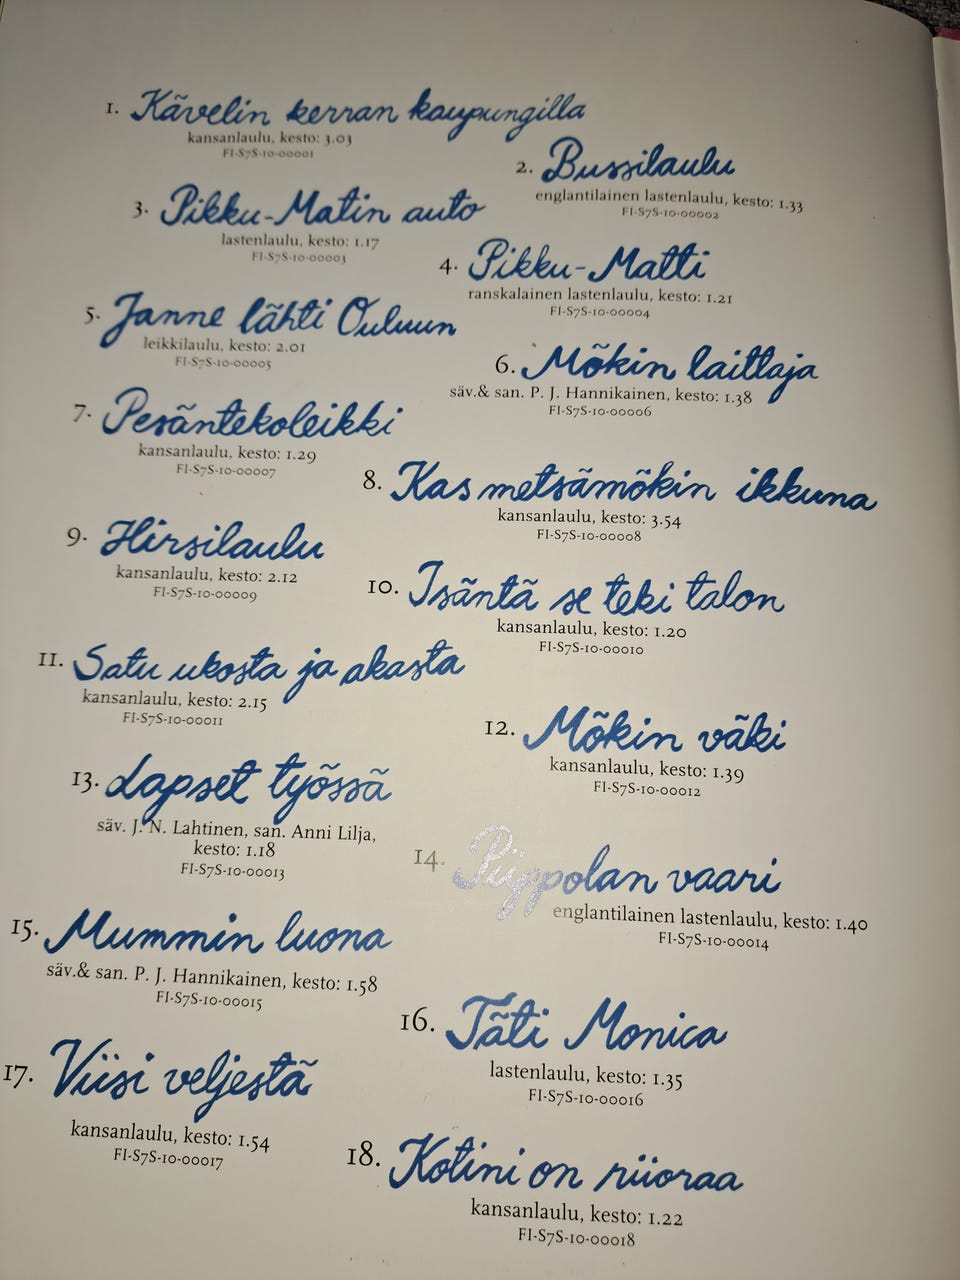 1. Kävelin kerran kaupungilla
kansanlaulu, kesto: 3.03
FI-S7S-10-00001
2. Bussilaulu
englantilainen lastenlaulu, kesto: 1.33
FI-S7S-10-00002
3. Pikku-Matin auto
lastenlaulu, kesto: 1.17
FI-S7S-10-00003
4. Pikku-Matti
ranskalainen lastenlaulu, kesto: 1.21
FI-S7S-10-00004
5. Janne lähti Ouluun
leikkilaulu, kesto: 2.01
FI-S7S-10-00005
6. Mökin laittaja
säv.& san. P. J. Hannikainen, kesto: 1.38
FI-S7S-10-00006
7. Pesäntekoleikki
kansanlaulu, kesto: 1.29
FI-S7S-10-00007
8. Kas metsämökin ikkuna
kansanlaulu, kesto: 3.54
FI-S7S-10-00008
9. Hirsilaulu
kansanlaulu, kesto: 2.12
FI-S7S-10-00009
10. Isäntä se teki talon
kansanlaulu, kesto: 1.20
FI-S7S-10-00010
11. Satu ukosta ja akasta
kansanlaulu, kesto: 2.15
FI-S7S-10-00011
12. Mökin väki
kansanlaulu, kesto: 1.39
FI-S7S-10-00012
13. Lapset työssä
säv. J. N. Lahtinen, san. Anni Lilja,
kesto: 1.18
FI-S7S-10-00013
14. Piippolan vaari
englantilainen lastenlaulu, kesto: 1.40
FI-S7S-10-00014
15. Mummin luona
säv.& san. P. J. Hannikainen, kesto: 1.58
FI-S7S-10-00015
16. Täti Monica
lastenlaulu, kesto: 1.35
FI-S7S-10-00016
17. Viisi veljestä
kansanlaulu, kesto: 1.54
FI-S7S-10-00017
18. Kotini on riioraa
kansanlaulu, kesto: 1.22
FI-S7S-10-00018